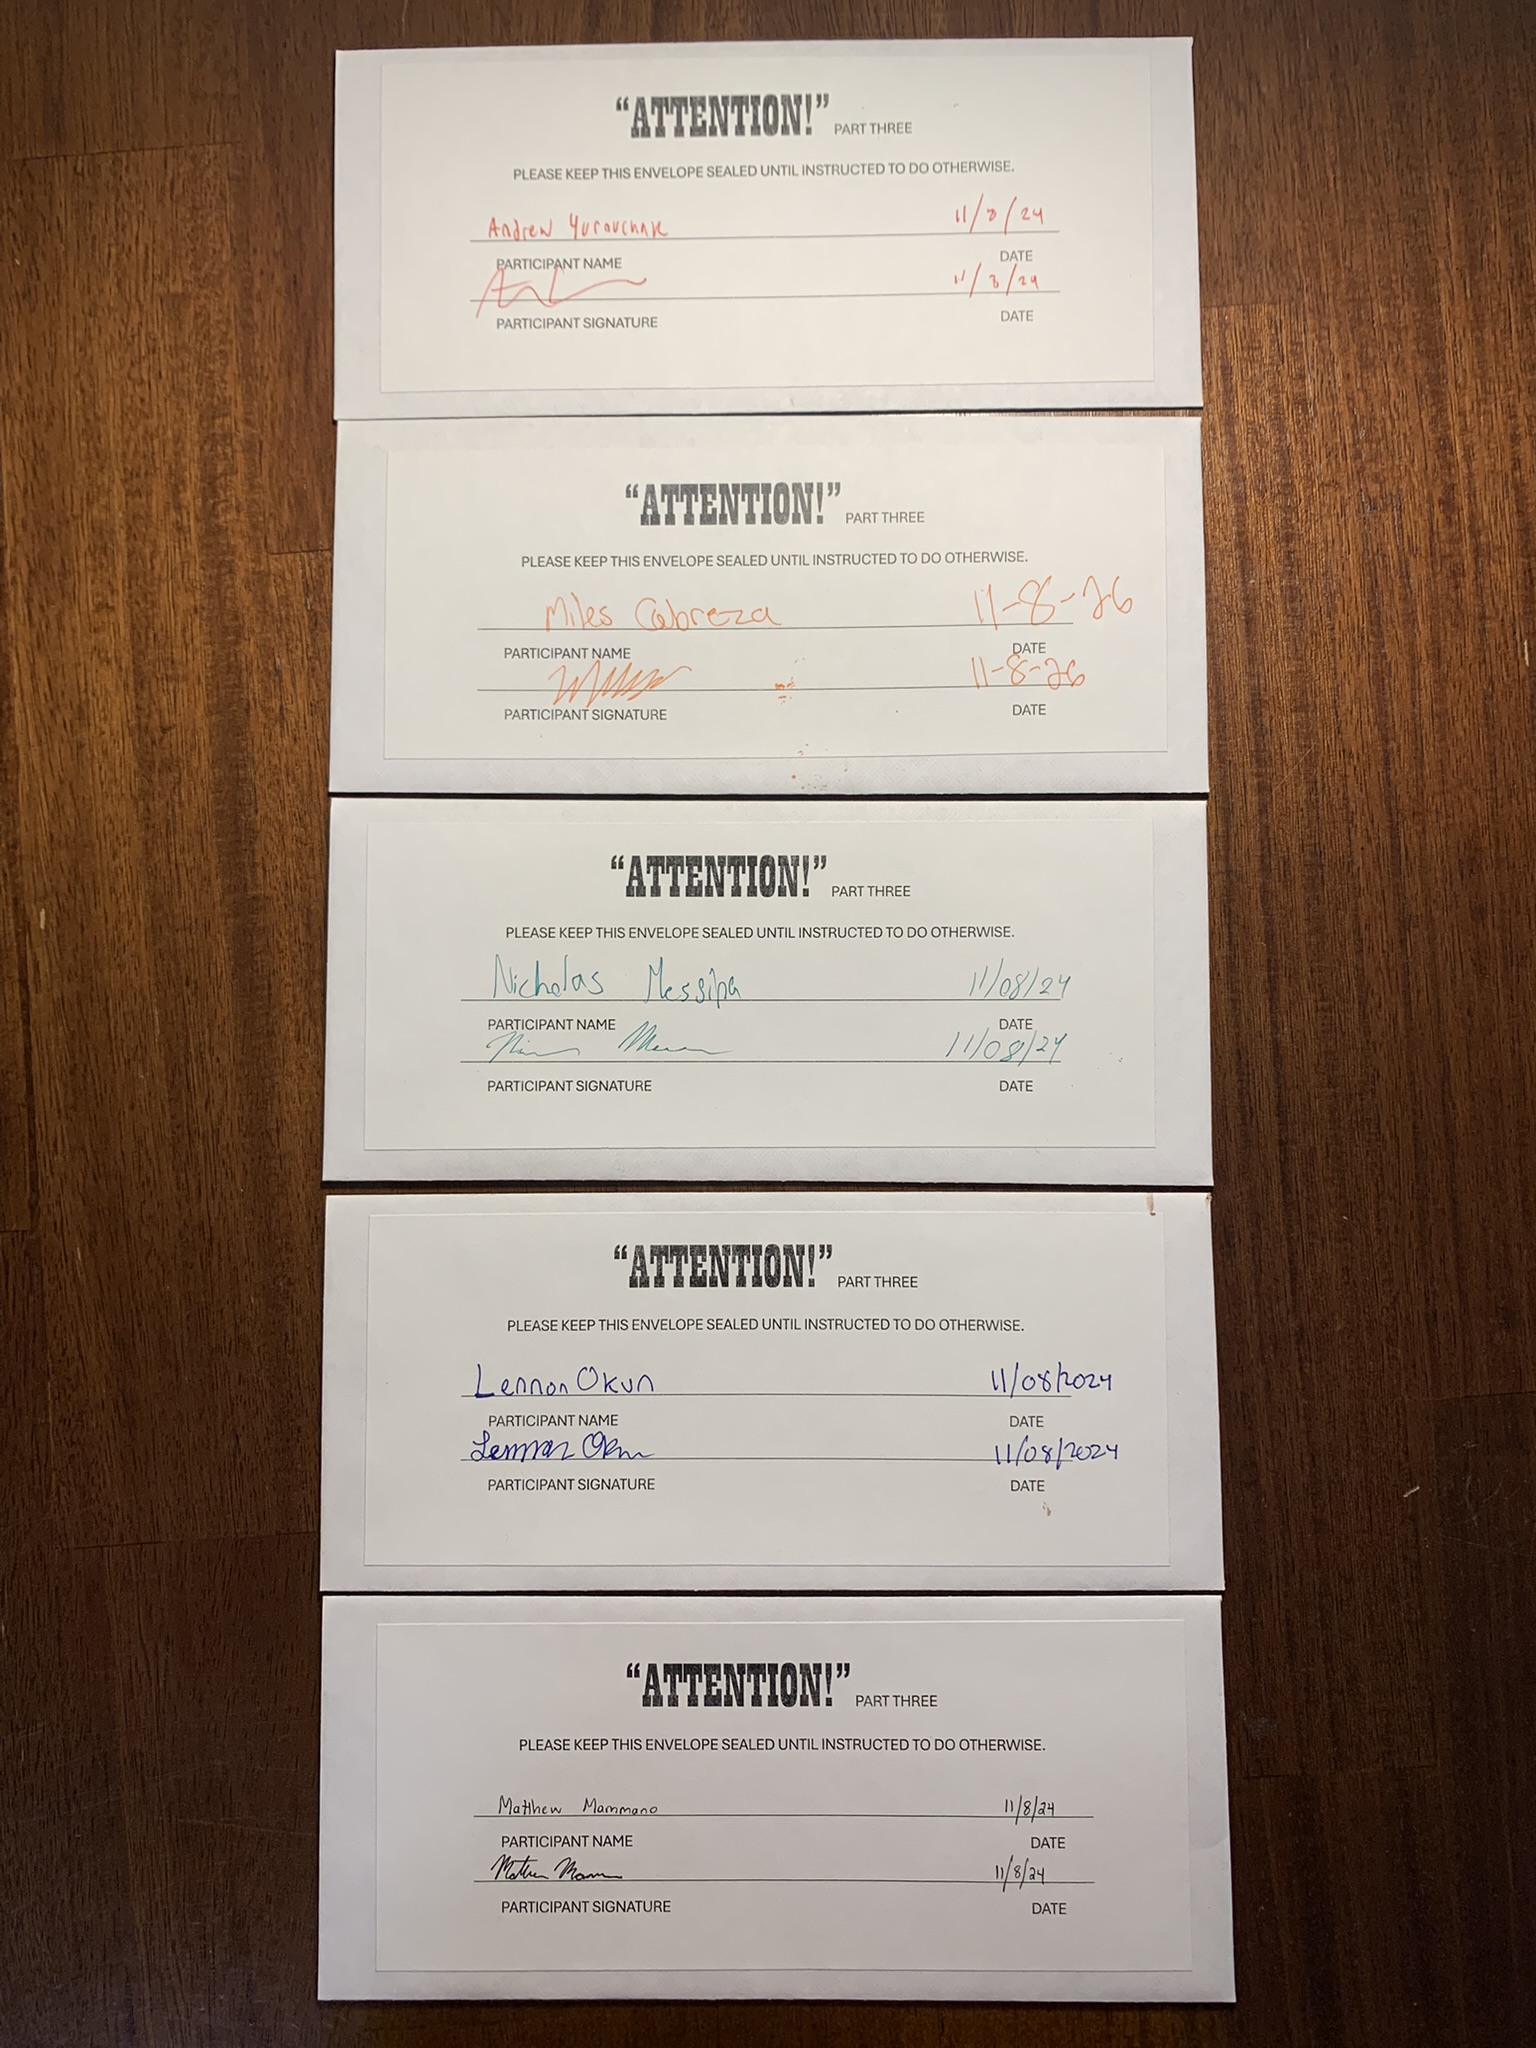 “ATTENTION!” PART THREE
PLEASE KEEP THIS ENVELOPE SEALED UNTIL INSTRUCTED TO DO OTHERWISE.
Andrew Yurouchak 11/8/24
PARTICIPANT NAME DATE
11/8/24
PARTICIPANT SIGNATURE DATE
“ATTENTION!” PART THREE
PLEASE KEEP THIS ENVELOPE SEALED UNTIL INSTRUCTED TO DO OTHERWISE.
Miles Cabreza 11-8-26
PARTICIPANT NAME DATE
11-8-26
PARTICIPANT SIGNATURE DATE
“ATTENTION!” PART THREE
PLEASE KEEP THIS ENVELOPE SEALED UNTIL INSTRUCTED TO DO OTHERWISE.
Nicholas Messina 11/08/24
PARTICIPANT NAME DATE
11/08/24
PARTICIPANT SIGNATURE DATE
“ATTENTION!” PART THREE
PLEASE KEEP THIS ENVELOPE SEALED UNTIL INSTRUCTED TO DO OTHERWISE.
Lennon Okun 11/08/2024
PARTICIPANT NAME DATE
Lennon Okun 11/08/2024
PARTICIPANT SIGNATURE DATE
“ATTENTION!” PART THREE
PLEASE KEEP THIS ENVELOPE SEALED UNTIL INSTRUCTED TO DO OTHERWISE.
Matthew Mammano 11/8/24
PARTICIPANT NAME DATE
11/8/24
PARTICIPANT SIGNATURE DATE